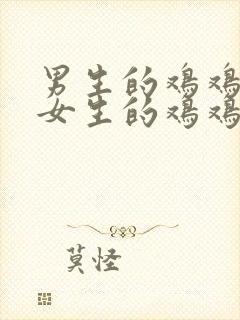 男生的鸡鸡
女生的鸡鸡
莫怪